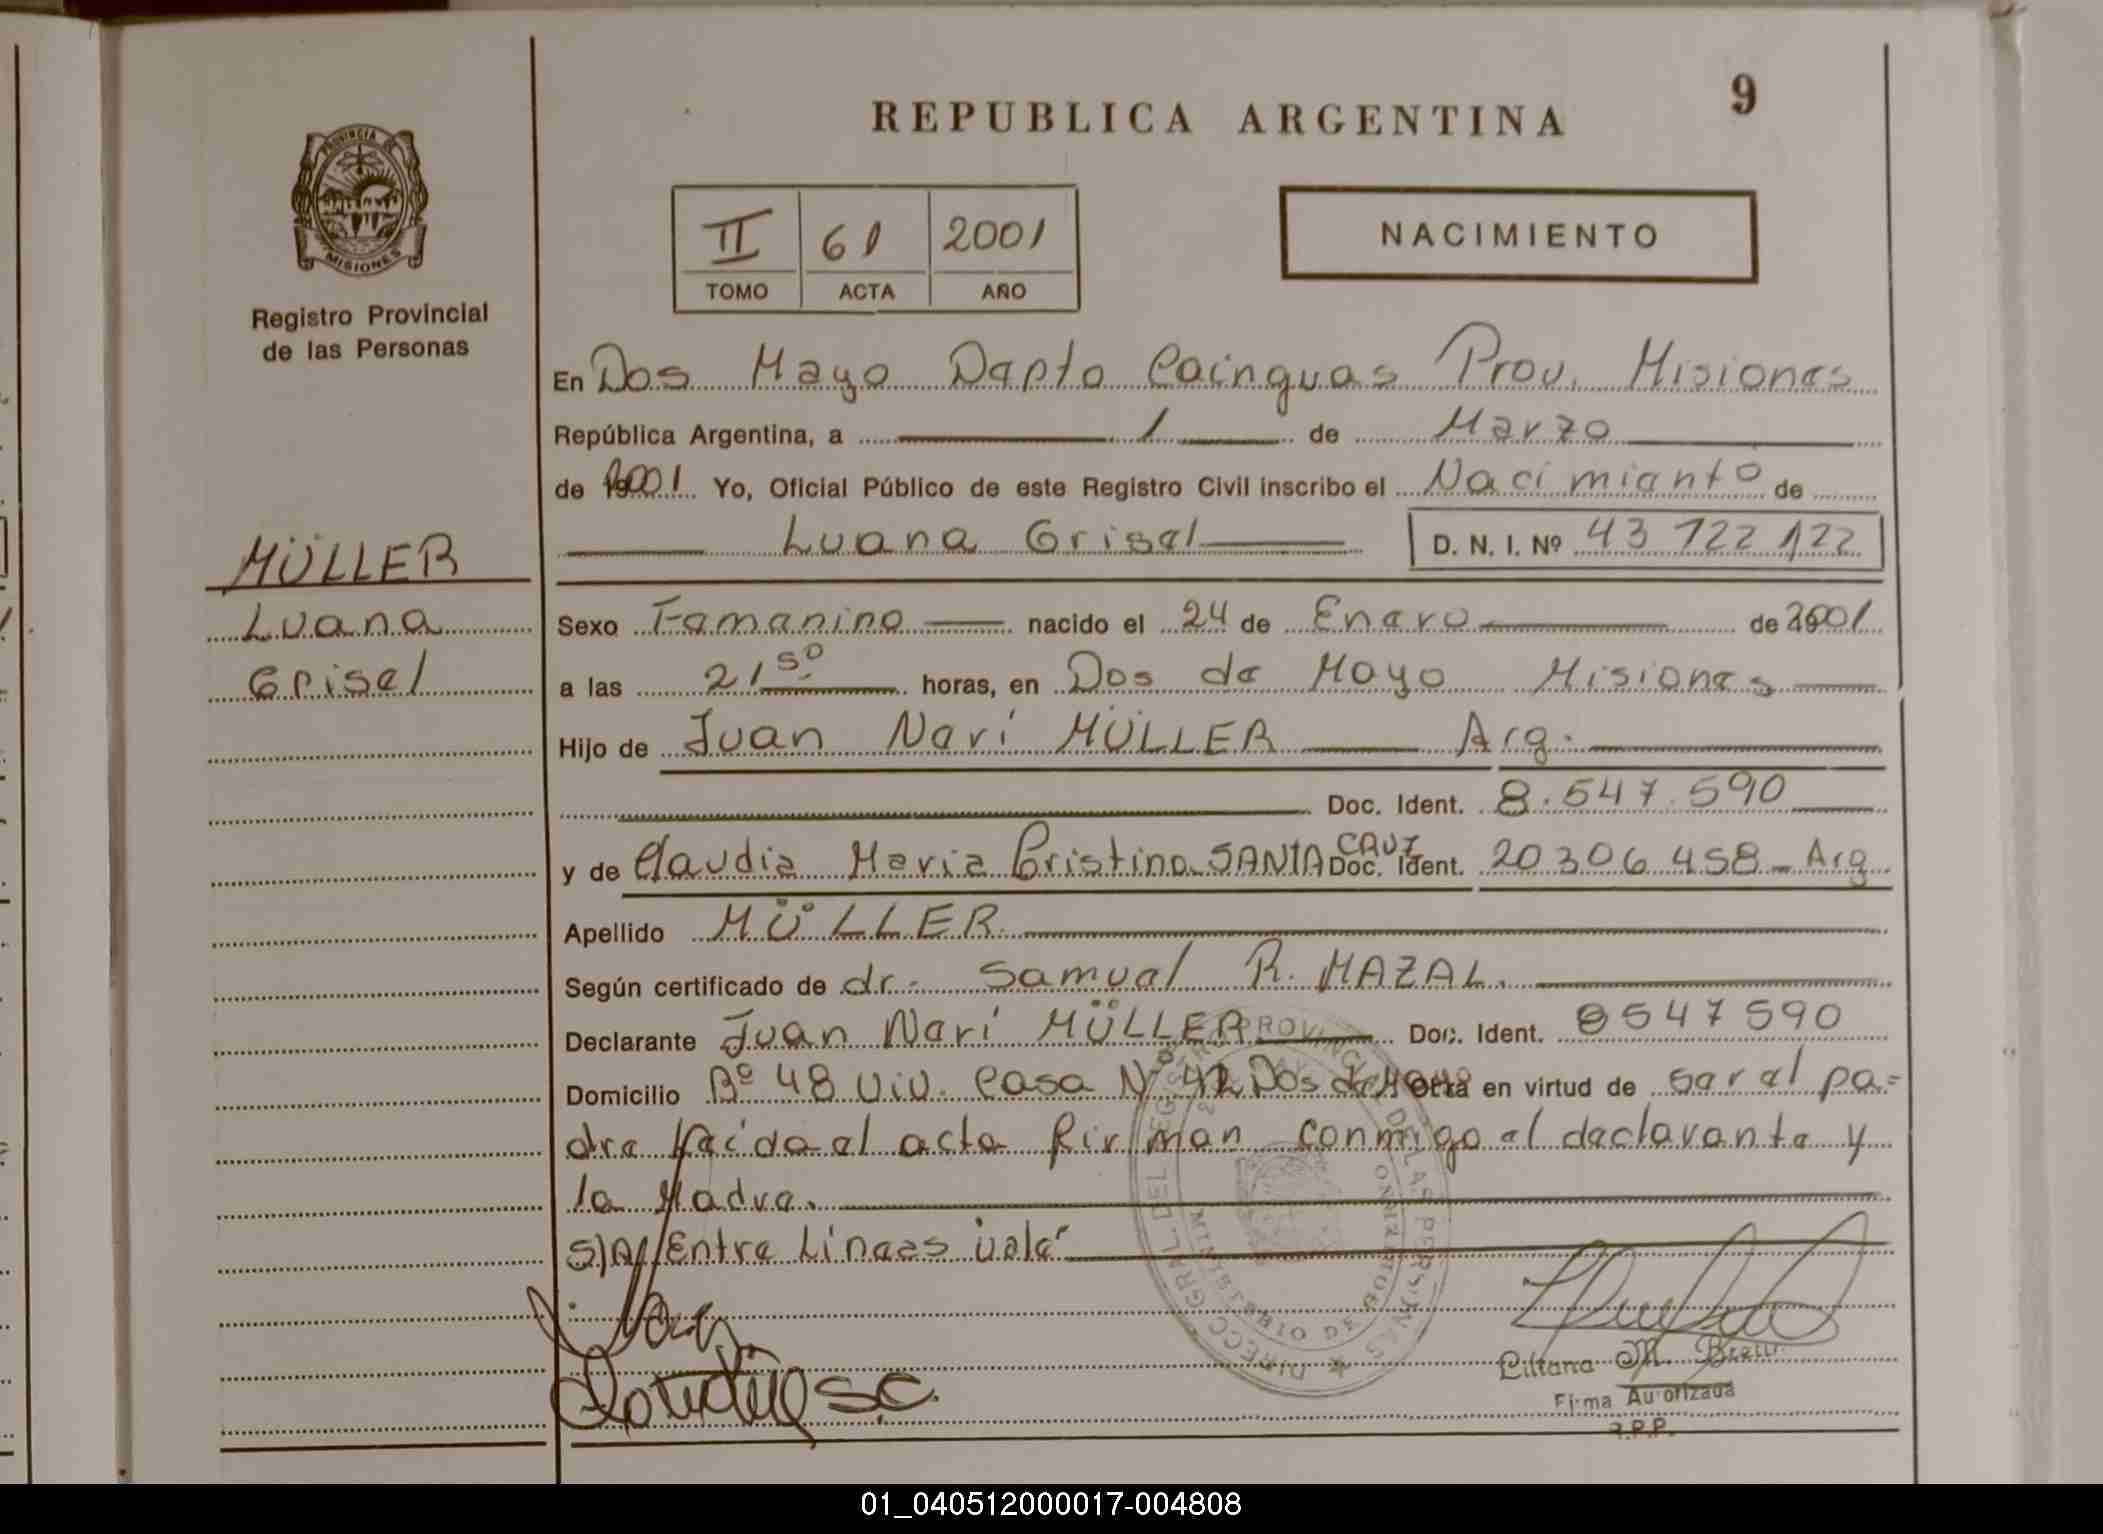 REPUBLICA ARGENTINA
9
PROVINCIA DE
MISIONES
Registro Provincial
de las Personas
II 61 2001
TOMO ACTA AÑO
NACIMIENTO
En Dos Mayo Depto Cainguas Prov. Misiones
República Argentina, a 1 de Marzo
de 2001 Yo, Oficial Público de este Registro Civil inscribo el Nacimiento de
Luana Grisel D. N. I. Nº 43 722 122
MÜLLER
Luana
Grisel
Sexo Femenino nacido el 24 de Enero de 2001
a las 21 50 horas, en Dos de Mayo Misiones
Hijo de Juan Neri MÜLLER Arg.
Doc. Ident. 8.547.590
y de Claudia Maria Cristina SANTA CRUZ Doc. Ident. 20306458 - Arg
Apellido MÜLLER
Según certificado de dr. Samuel R. MAZAL.
Declarante Juan Neri MÜLLER Doc. Ident. 8547590
Domicilio Bº 48 Viv. Casa Nº 42 Dos de Mayo Otra en virtud de ser el pa=
dre leida el acta firman conmigo el declarante y
la Madre.
S/A/ Entre Lineas vale
DIRECC. GRAL. DEL REGISTRO PROVINCIAL DE LAS PERSONAS
MINISTERIO DE GOBIERNO
Liliana M.
Firma Autorizada
R.P.P.
01_040512000017-004808